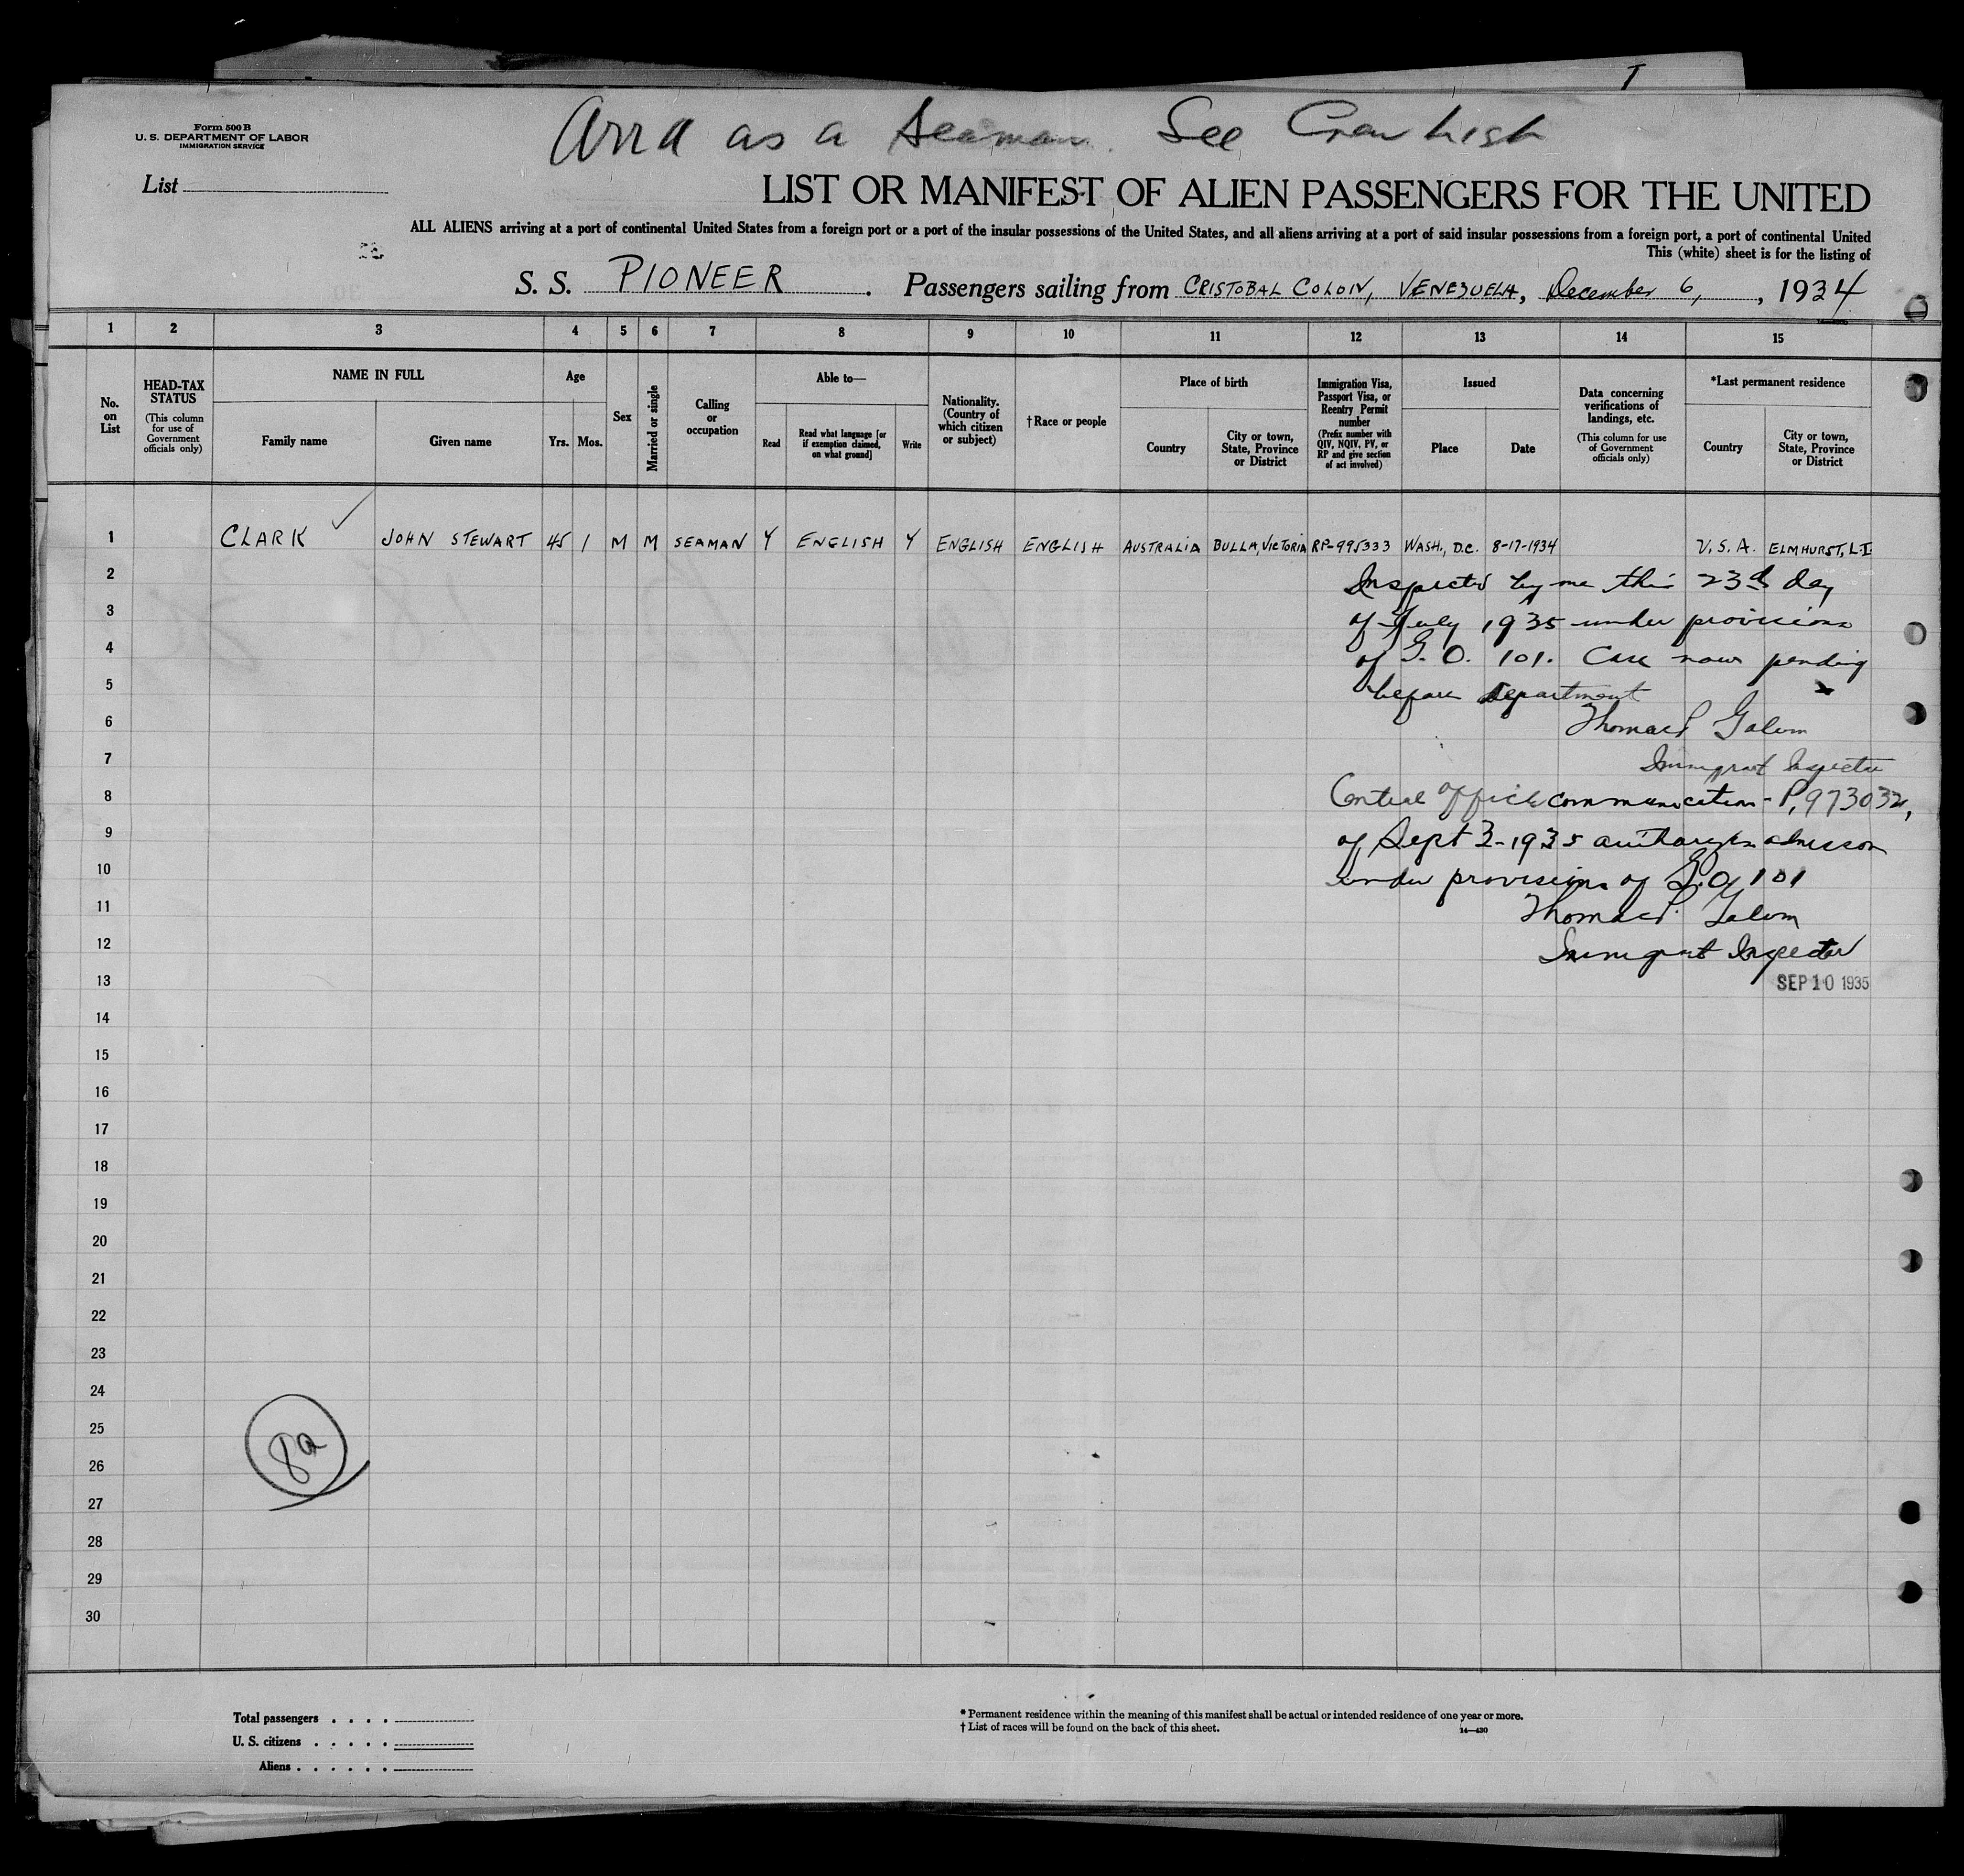 T
Form 500 B
U. S. DEPARTMENT OF LABOR
IMMIGRATION SERVICE
Arrd as a Seaman. See Crew List
List
LIST OR MANIFEST OF ALIEN PASSENGERS FOR THE UNITED
ALL ALIENS arriving at a port of continental United States from a foreign port or a port of the insular possessions of the United States, and all aliens arriving at a port of said insular possessions from a foreign port, a port of continental United
This (white) sheet is for the listing of
S. S. PIONEER. Passengers sailing from CRISTOBAL COLON, VENEZUELA, December 6, , 1934
1 2 3 4 5 6 7 8 9 10 11 12 13 14 15
No. on List
HEAD-TAX STATUS (This column for use of Government officials only)
NAME IN FULL
Family name
Given name
Age
Yrs. Mos.
Sex
Married or single
Calling or occupation
Able to—
Read
Read what language [or if exemption claimed, on what ground]
Write
Nationality. (Country of which citizen or subject)
†Race or people
Place of birth
Country
City or town, State, Province or District
Immigration Visa, Passport Visa, or Reentry Permit number (Prefix number with QIV, NQIV, PV, or RP and give section of act involved)
Issued
Place
Date
Data concerning verifications of landings, etc. (This column for use of Government officials only)
*Last permanent residence
Country
City or town, State, Province or District
1 CLARK JOHN STEWART 45 1 M M SEAMAN Y ENGLISH Y ENGLISH ENGLISH AUSTRALIA BULLA, VICTORIA RP-995333 WASH., D.C. 8-17-1934 U.S.A. ELMHURST, L.I.
2 Inspected by me this 23d day
3 of July 1935 under provisions
4 of G.O. 101. Case now pending
5 before Department
6 Thomas
7 Immigrant Inspector
8 Central Office communication - P,973032,
9 of Sept 3-1935 authorizes admission
10 under provisions of G.O. 101
11 Thomas
12 Immigrant Inspector
13 SEP 10 1935
14
15
16
17
18
19
20
21
22
23
24
25
8a
26
27
28
29
30
Total passengers . . . .
U. S. citizens . . . . .
Aliens . . . . . .
* Permanent residence within the meaning of this manifest shall be actual or intended residence of one year or more.
† List of races will be found on the back of this sheet.
14—430